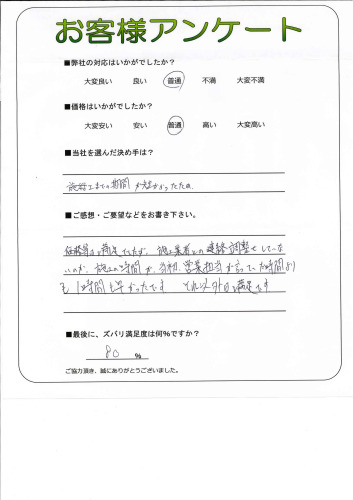 お客様アンケート
■弊社の対応はいかがでしたか？
大変良い 良い 普通 不満 大変不満
■価格はいかがでしたか？
大変安い 安い 普通 高い 大変高い
■当社を選んだ決め手は？
施工までの期間が短かったため
■ご感想・ご要望などをお書き下さい。
価格等は満足でしたが、施工業者との連絡調整をしていな
いのか、施工の時間が、当初、営業担当が言っていた時間より
も1時間も早かったです それ以外は満足です
■最後に、ズバリ満足度は何%ですか？
80 %
ご協力頂き、誠にありがとうございました。